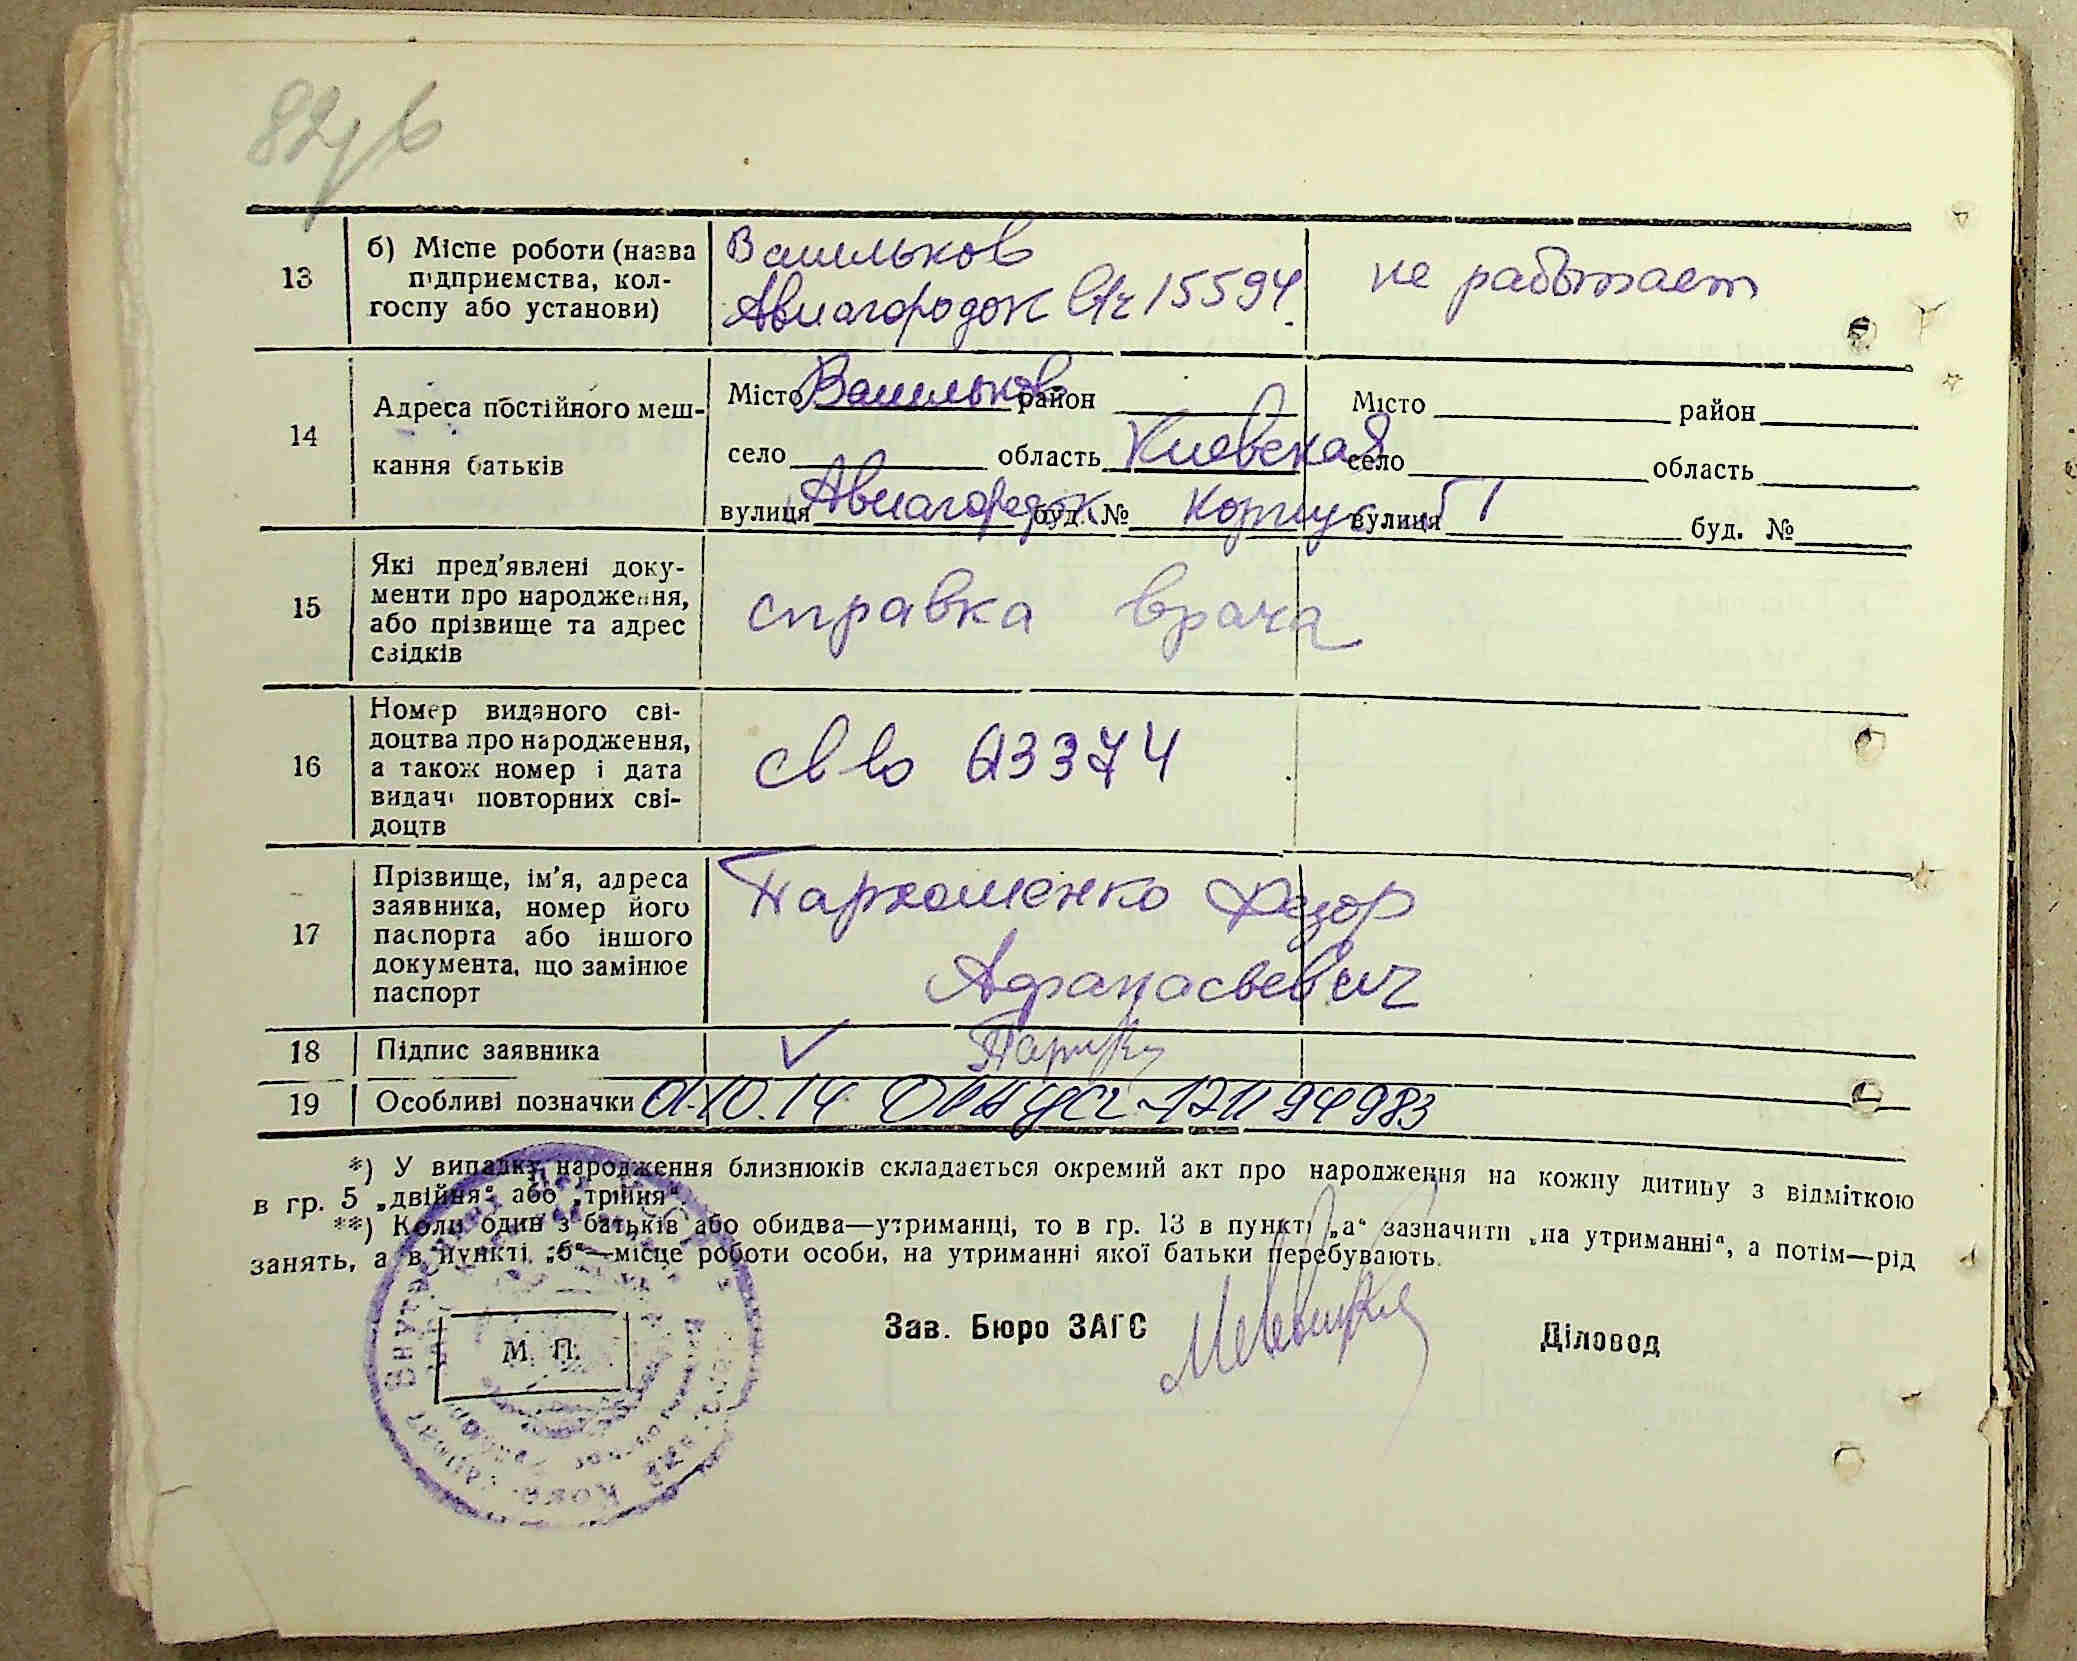 82
13
б) Місце роботи (назва
підприємства, кол-
госпу або установи)
Васильков
Авиагородок в/ч 15594.
не работает
14
Адреса постійного меш-
кання батьків
Місто Васильков район
село область Киевская
вулиця Авиагородок буд. № Корпус 51
Місто район
село область
вулиця буд. №
15
Які пред'явлені доку-
менти про народження,
або прізвище та адрес
свідків
справка врача
16
Номер виданого сві-
доцтва про народження,
а також номер і дата
видачі повторних сві-
доцтв
св во 03374
17
Прізвище, ім'я, адреса
заявника, номер його
паспорта або іншого
документа, що замінює
паспорт
Пархоменко Федор
Афанасьевич
18
Підпис заявника
19
Особливі позначки 01.10.14 94983
*) У випадку народження близнюків складається окремий акт про народження на кожну дитину з відміткою
в гр. 5 „двійня“ або „трійня“.
**) Коли один з батьків або обидва—утриманці, то в гр. 13 в пункті „а“ зазначити „на утриманні“, а потім—рід
занять, а в пункті „б“—місце роботи особи, на утриманні якої батьки перебувають.
М. П.
Зав. Бюро ЗАГС
Діловод